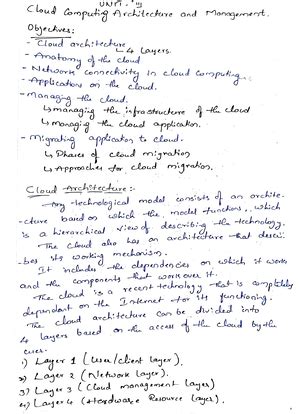 UNIT : III
Cloud Computing Architecture and Management.
Objectives:
- Cloud architecture
↳ 4 layers.
- Anatomy of the cloud
- Network connectivity in cloud computing.
- Application on the cloud.
- Managing the cloud.
↳ managing the infrastructure of the cloud
↳ managing the cloud application.
- Migrating application to cloud.
↳ Phases of cloud migration
↳ Approaches for cloud migration.
Cloud Architecture:-
Any technological model consists of an archite-
-cture based on which the model functions, which
is a hierarchical view of describing the technology.
The cloud also has an architecture that descri-
-bes its working mechanism.
It includes the dependencies on which it works
and the components that work over it.
The cloud is a recent technology that is completely
dependant on the Internet for its functioning.
The cloud architecture can be divided into
4 layers based on the access of the cloud by the
user.
1) Layer 1 (User/client layer).
2) Layer 2 (Network layer).
3) Layer 3 (Cloud management layer)
4) Layer 4 (Hardware Resource layer).